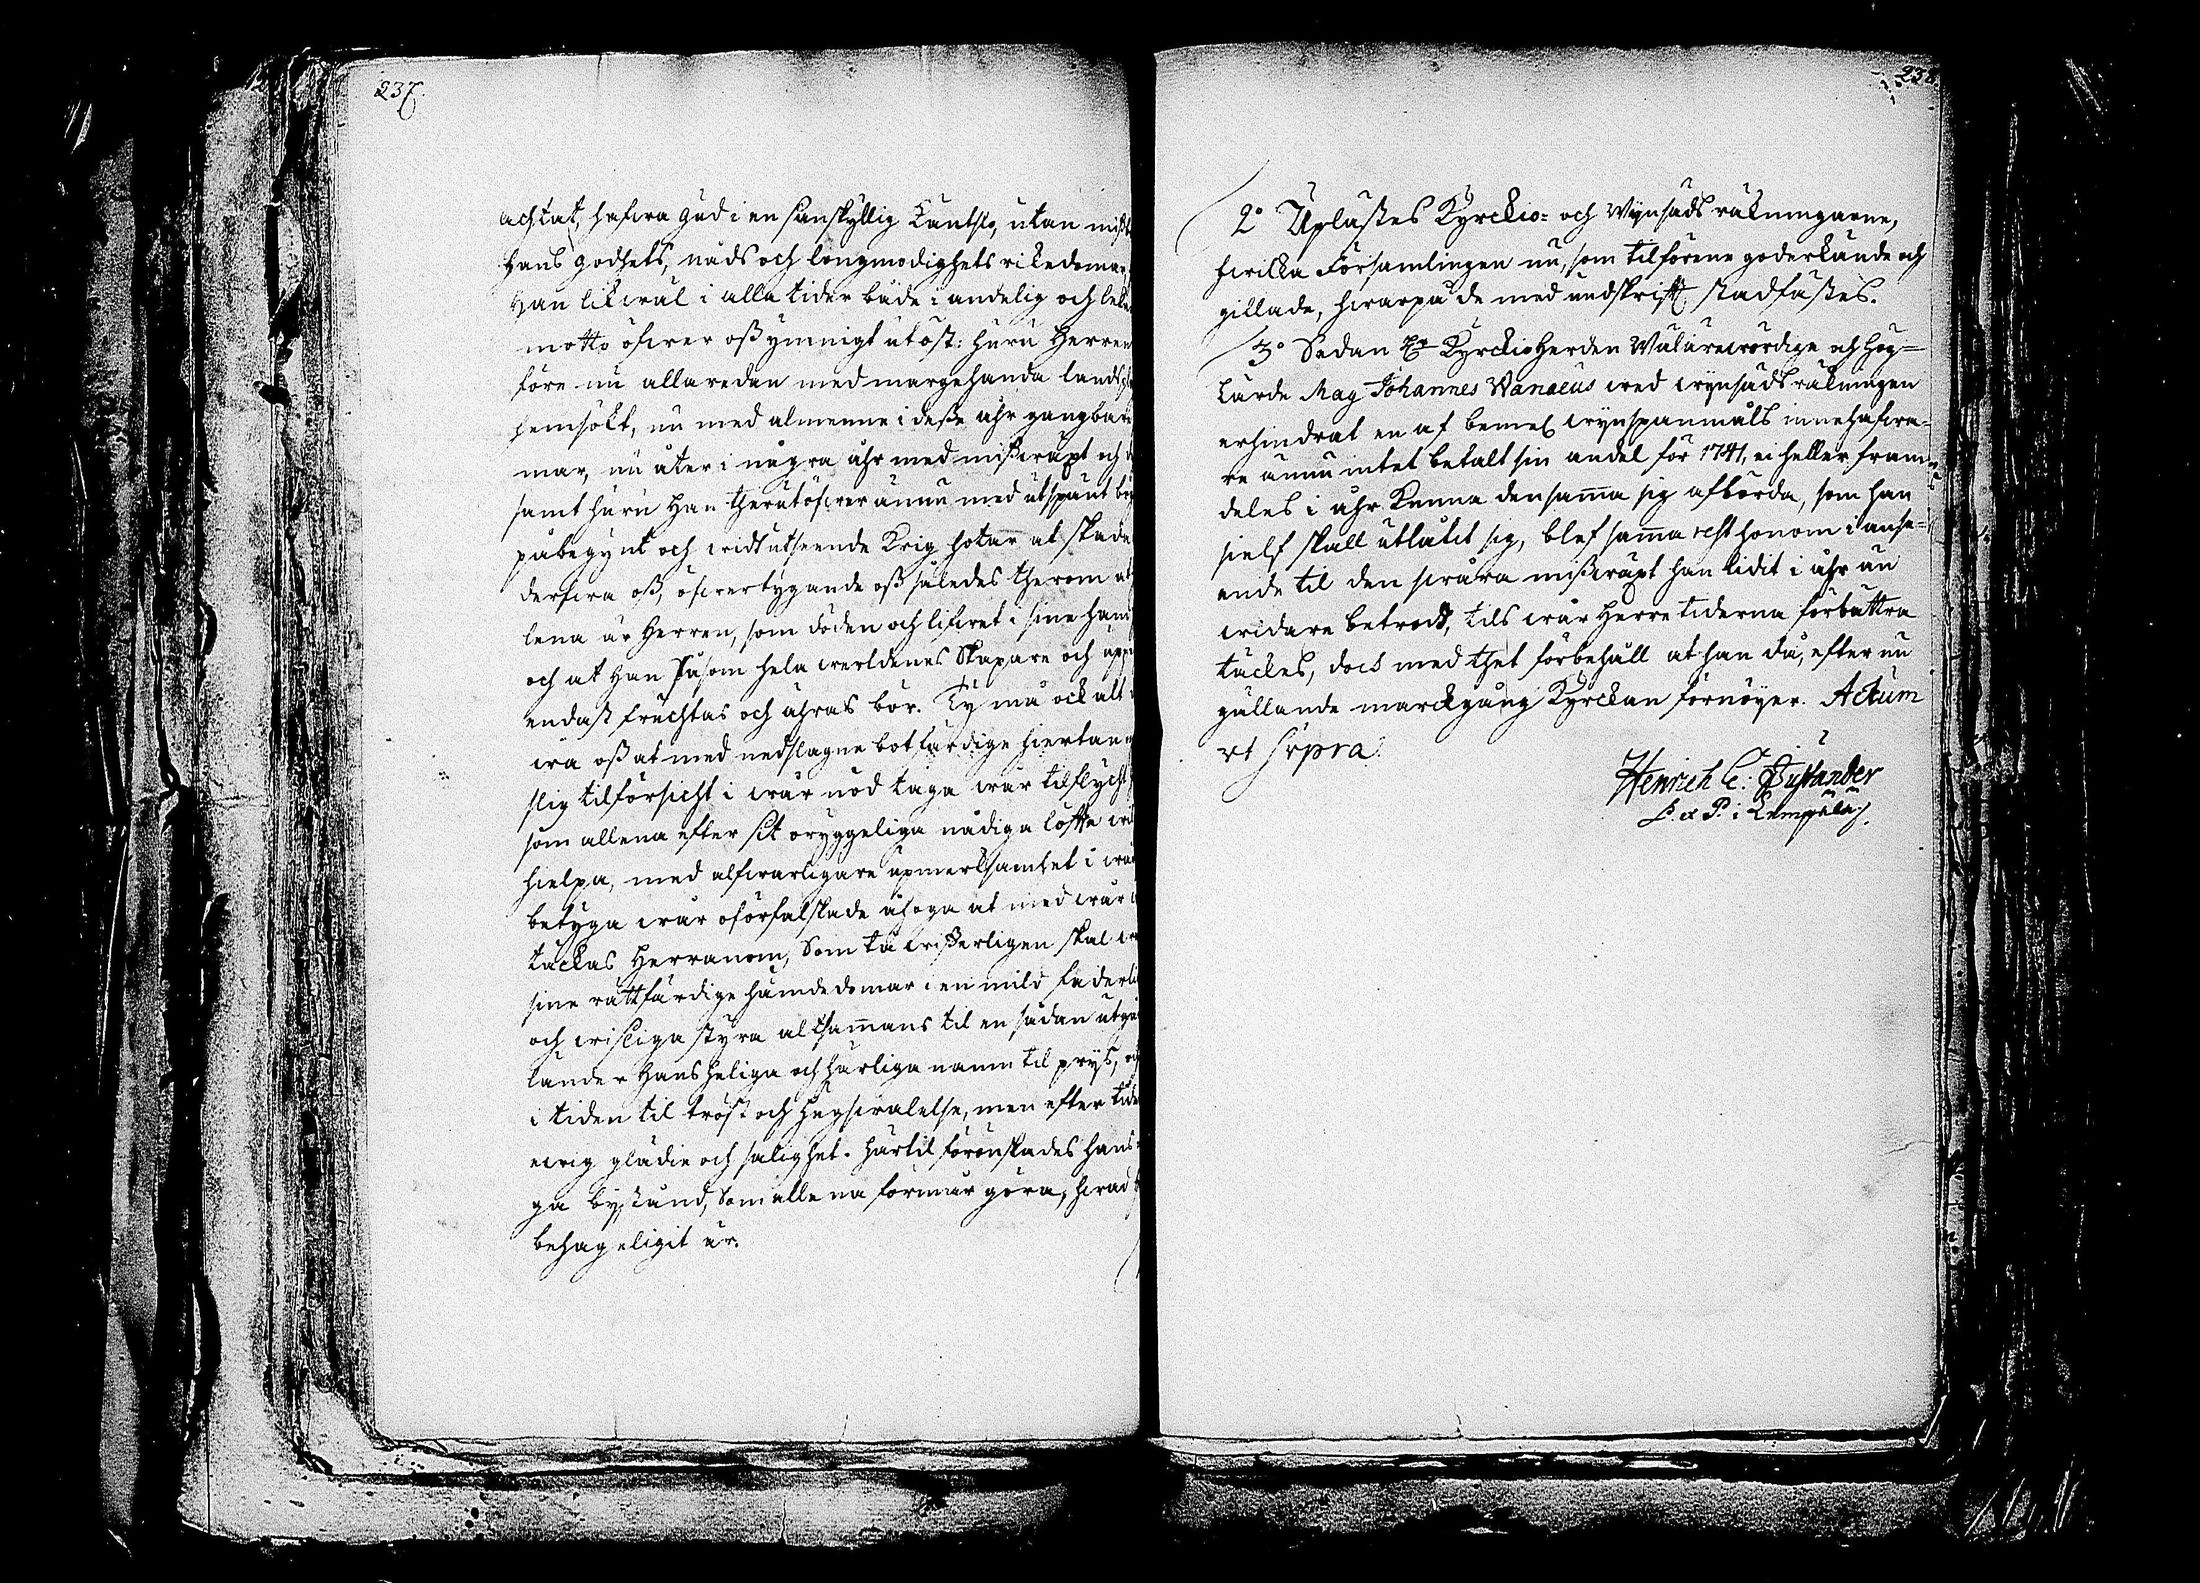 237.
achtat, hafwa Gud i en sanskyllig Käntslo, utan miß
Hans godhets, nåds och långmodighets rikedomar,
Han likwäl i alla tider både i andelig och lek
motto öfwer oß ymnigt utöst: huru Herren
före nu allaredan med margehanda lands
hemsökt, nu med almenne i deße åhr gangbare
mar, nu åter i några åhr med mißwäxt och
samt huru Han therutöfwer ännu med utspänt
påbegynt och widt utseende Krig hotar at skada
derfwa oß, öfwertygande oß således therom at
lena är Herren, som döden och lifwet i sine
och at Han såsom hela werldenes Skapare och
endast fruchtas och ähras bör. Ty må ock alt
wa oß at med nedslagne botfärdige hiertan
slig tilförsicht i wår nöd taga wår tilflycht
som allena efter sit oryggeliga nådiga löffte
hielpa, med alfwarligare upmerksamhet i
betyga wår oförfalskade åhoga at med wår
täckas Herranom, Som tå wißerligen skal
sine rättfärdige hämdedomar i en mild faderli
och wisliga styra altsammans til en sådan utgå
länder Hans heliga och härliga namn til prys, och
i tiden til tröst och hugswalelse, men efter tide
ewig glädie och salighet. Härtil förönskades Hans
ga bystånd, Som allena förmår göra, hwad
behageligit är.
238
2° Uplästes Kyrckio= och Wynsäds räkningarne,
hwilka Församlingen nu, som tilförene goderkände och
gillade, hwarpå de med undskrifft stadfästes.
3° Sedan Hr Kyrckioherden Wälärewördige och Hög=
lärde Mag Johannes Wanaeus wed wynsäds räkningen
erhindrat en af bemel wynspanmåls innehafwa=
re ännu intet betalt sin andel för 1741, ei heller fram=
deles i åhr kunna densamma sig afbörda, som han
sielf skall utlåtit sig, blef samma rest honom i anse=
ende til den swåra mißwäxt han lidit i åhr än
widare betrodt, tils wår Herre tiderna förbättra
täckes, dock med thet förbehåll at han då, efter nu
gällande marckgång Kyrckan förnöyer. Actum
ut supra.
Henrich C:
P. et P. i Lempälä.